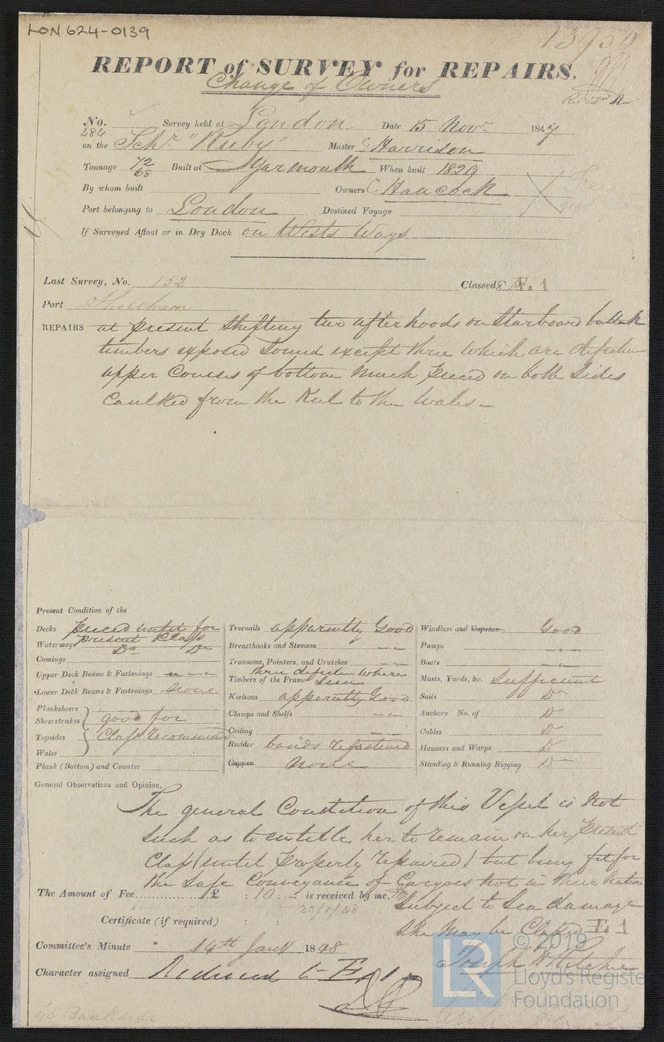 LON 624-0139
13950
REPORT of SURVEY for REPAIRS.
Change of Owners
No. 484 Survey held at London Date 15 Novr 1847
on the Schr "Ruby" Master G Harrison
Tonnage 72/68 Built at Yarmouth When built 1829
By whom built Owners C Hancock
Port belonging to London Destined Voyage
If Surveyed Afloat or in Dry Dock on Wests Ways
Last Survey, No. 152 Classed Æ 1
Port Shoreham
REPAIRS at present shifting two afterhoods on Starboard buttock
timbers exposed Sound except three which are defective
upper Courses of bottom much pieced on both Sides
Caulked from the Keel to the Wales
Present Condition of the
Decks pieced unfit for
present Class
Waterways Do Do
Comings
Upper Deck Beams & Fastenings
Lower Deck Beams & Fastenings None
Planksheers
Sheerstrakes good for
Topsides Class recommend
Wales
Plank (Bottom) and Counter
Treenails apparently Good
Breasthooks and Stemson
Transoms, Pointers, and Crutches
three defective where
Timbers of the Frame Seen
Keelsons apparently Good
Clamps and Shelfs
Ceiling
Rudder bands refastened
Copper None
Windlass and Capstan Good
Pumps
Boats
Masts, Yards, &c. Sufficient
Sails Do
Anchors No. of Do
Cables Do
Hawsers and Warps Do
Standing & Running Rigging Do
General Observations and Opinion,
The general Condition of this Vessel is not
such as to entitle her to remain on her present
Class (until properly repaired) but being fit for
the safe Conveyance of Cargoes not in their nature
The Amount of Fee £ : 10 : is received by me,
Subject to Sea damage
22/1/48
Certificate (if required) : :
She May be Classed Æ 1
Committee's Minute 14th Jany 1848
Joseph H Ritchie
Character assigned Reduced to Æ 1
© 2019
LR
Lloyd's Register
Foundation